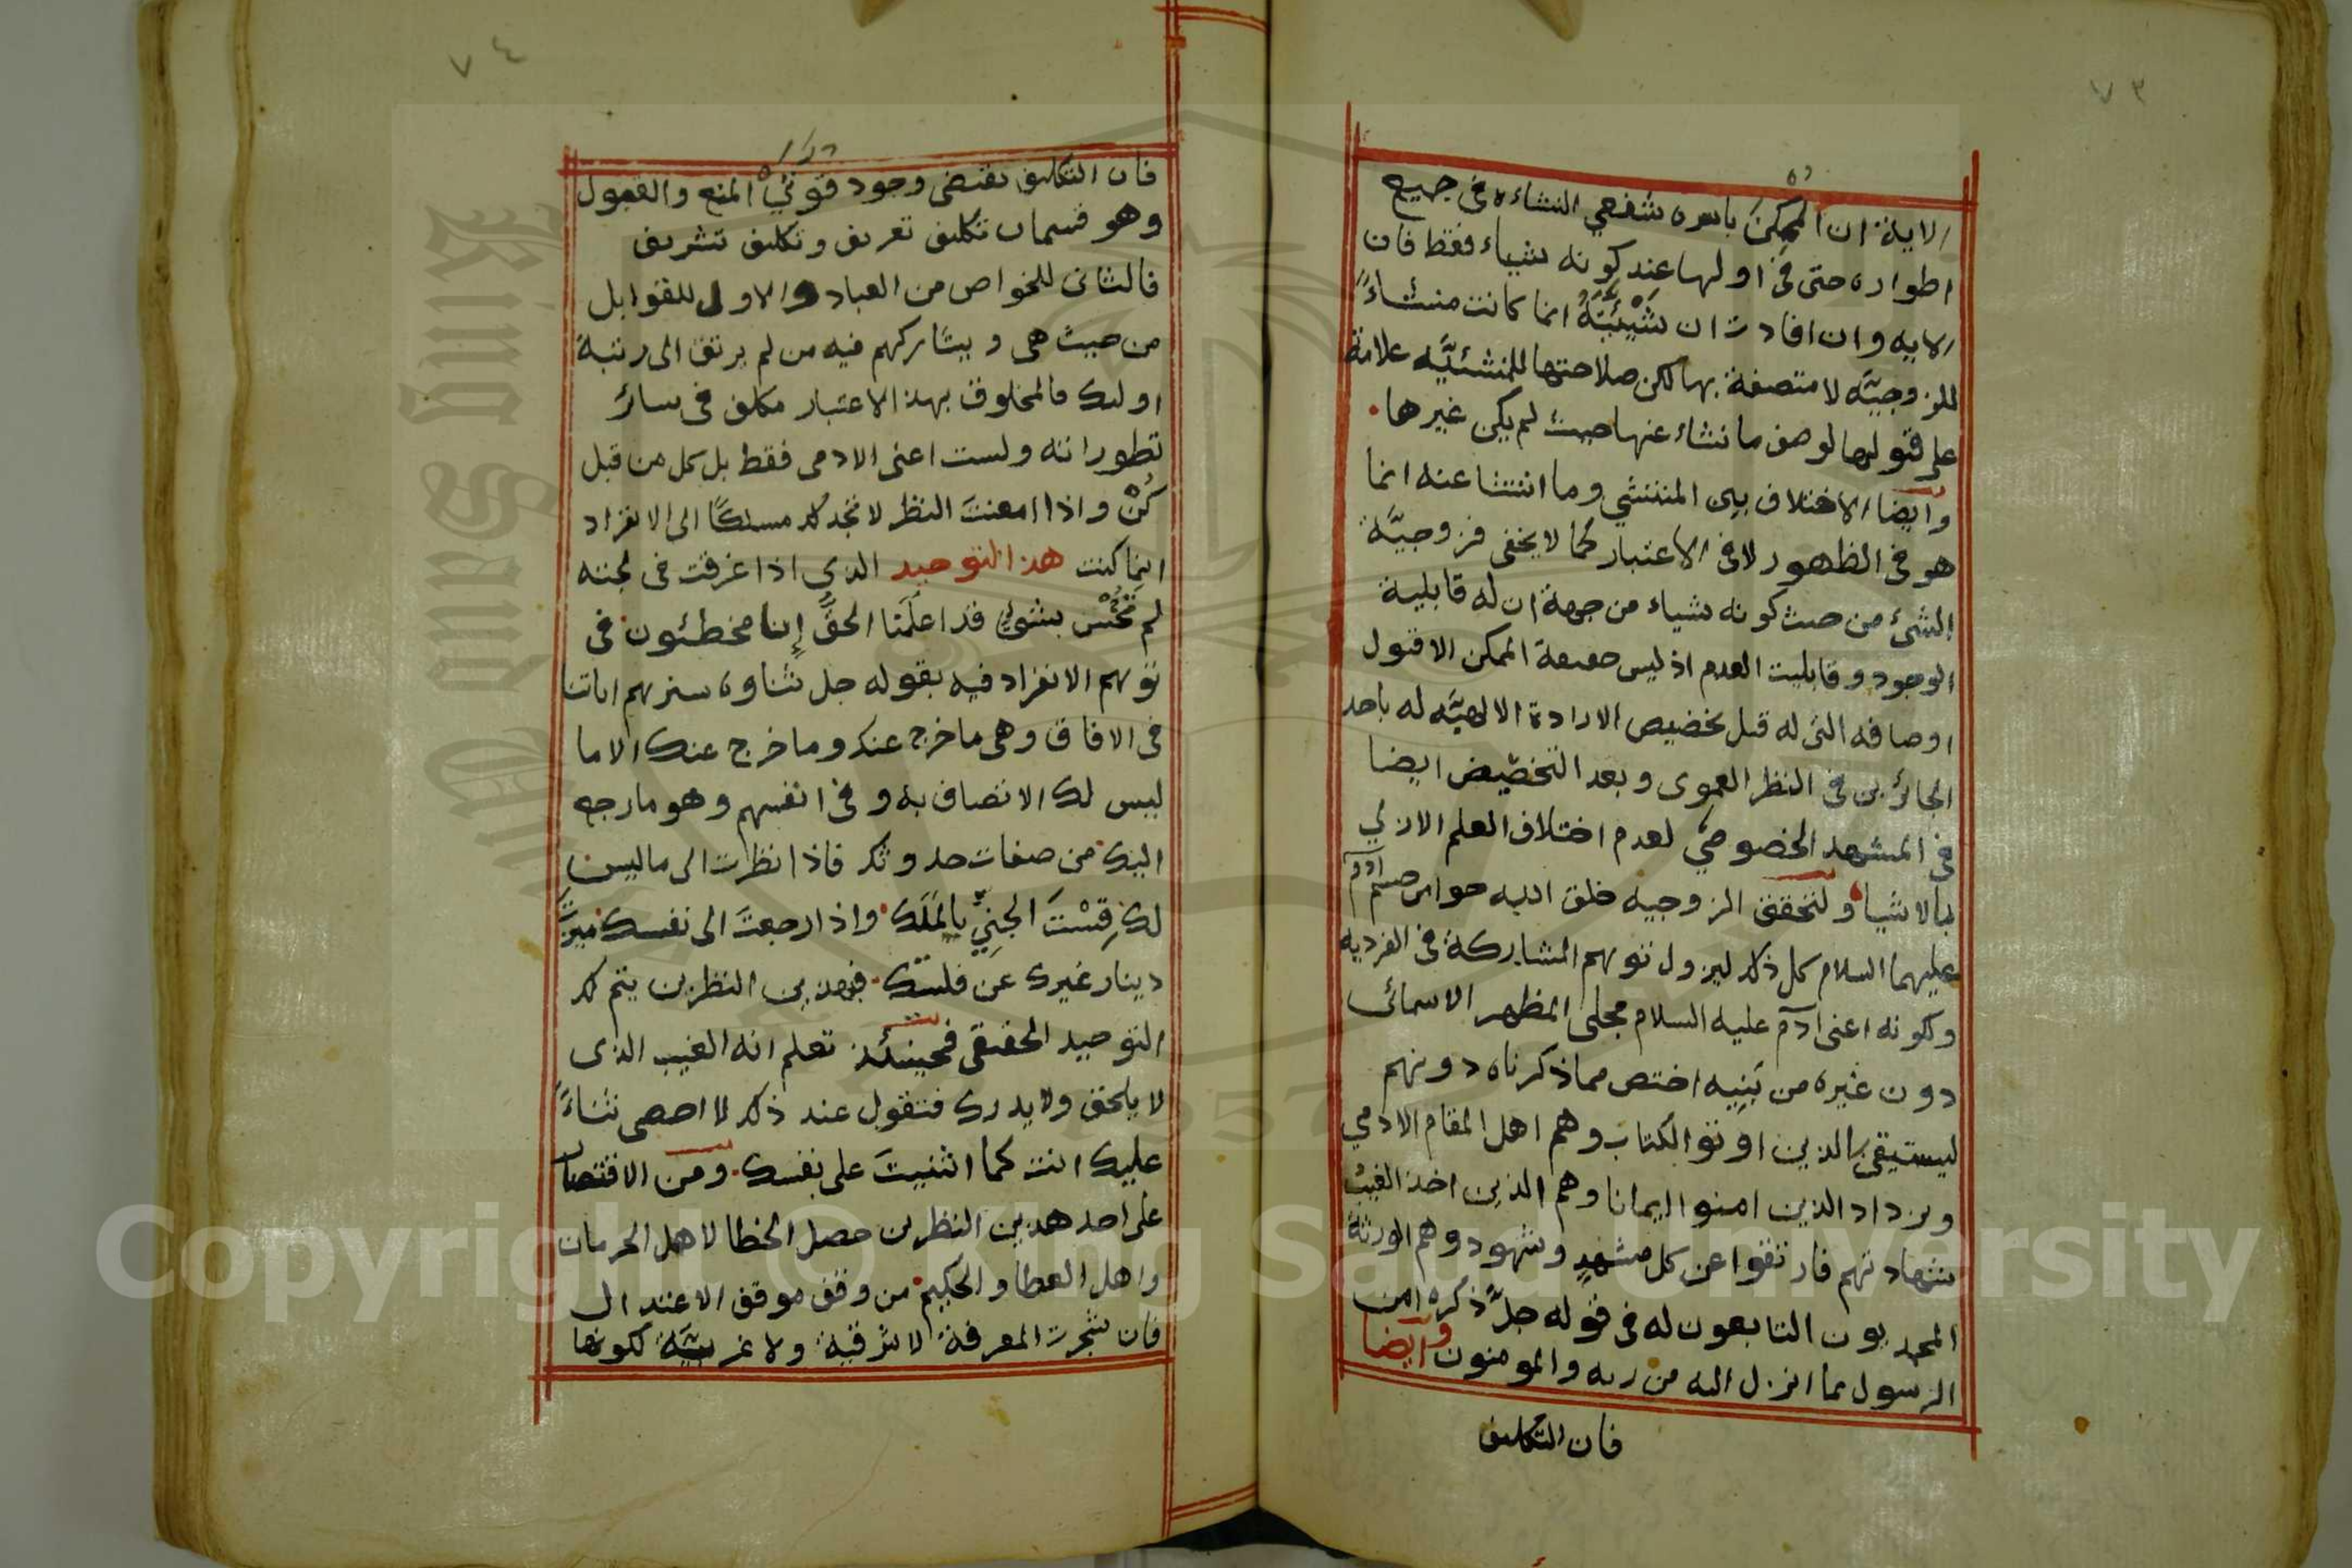 ٧٣
الاية ان الممكن باسره شفعي النشاءه في جميع
اطواره حتى في اولها عند كونه شياء فقط فان
الايه وان افادت ان شيئيته انما كانت منشاءً
للزوجيّه لا متصفة بها لكن صلاحتها للمنشئيّه علامة
على قبولها لوصف ما نشاء عنها حيث لم يكن غيرها
وايضا الاختلاف بين المنتشي وما انتشا عنه انما
هو في الظهور لا في الاعتبار كما لا يخفى فزوجيّة
الشئ من حيث كونه شياء من جهة ان له قابلية
الوجود وقابليت العدم اذ ليس حقيقة الممكن الا قبول
اوصافه التى له قبل تخصيص الارادة الالهيّه له باحد
الجائزين في النظر العموى وبعد التخصيص ايضا
في المشهد الخصوصي لعدم اختلاف العلم الازلي
بالاشيا ولتحقق الزوجيه خلق الله حوا من جسم ادم
عليهما السلام كل ذلك ليزول توهم المشاركة في الفرديه
وكونه اعنى آدم عليه السلام مجلى المظهر الاسمائى
دون غيره من بَنِيه اختص مما ذكرناه دونهم
ليستيقن الذين اوتو الكتاب وهم اهل المقام الادمي
ويزداد الذين امنو ايمانا وهم الذين اخذ الغيبُ
شهادتهم فارتقوا عن كل مشهدٍ وشهود وهم الورثة
المحمديون التابعون له في قوله جلّ ذكره امن
الرسول بما انزل اليه من ربه والمومنون وايضا
فان التكليف
٧٤
فان التكليف يقتضى وجود قوتي المنع والقبول
وهو قسمان تكليف تعريف وتكليف تشريف
فالثانى للخواص من العباد والاول للقوابل
من حيث هى ويشاركهم فيه من لم يرتق الى رتبة
اولئك فالمخلوق بهذا الاعتبار مكلف في سائر
تطوراته ولست اعنى الادمى فقط بل كل من قبل
كُنْ واذا امعنتَ النظر لا تجد لك مسلكًا الى الانفراد
اينما كنت هذا التوحيد الذي اذا غرقت في لجته
لم تُحُسْ بشئ قد اعلَمَنا الحقُّ إننا مخطئون في
توهم الانفراد فيه بقوله جل ثناوه سنريهم اياتنا
في الافاق وهى ما خرج عنك وما خرج عنك الا ما
ليس لك الاتصاف به وفي انفسهم وهو ما رجع
اليك من صفات حدوثك فاذا نظرت الى ما ليس
لك قِسْتَ الجنِيَّ بالمَلَك واذا رجعتَ الى نفسك ميزتَ
دينار غيرك عن فلسك فبهذين النظرين يتم لك
التوحيد الحقيقى فحينئذ تعلم انه الغيب الذى
لا يلحق ولا يدرك فتقول عند ذلك لا احصى ثناءً
عليك انت كما اثنيتَ على نفسك ومن الاقتصار
على احد هذين النظرين حصل الخطا لاهل الحرمان
واهل العطا والحكيم من وقف موقف الاعتدال
فان شجرت المعرفة لا شرقية ولا غربيّة لكونها
Copyright © King Saud University
King Saud University
1957